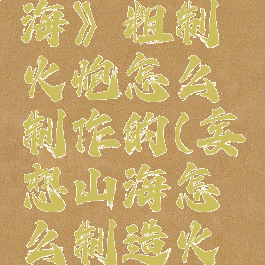 海》粗制
火炮怎么
制作的(妄
想山海怎
么制造火